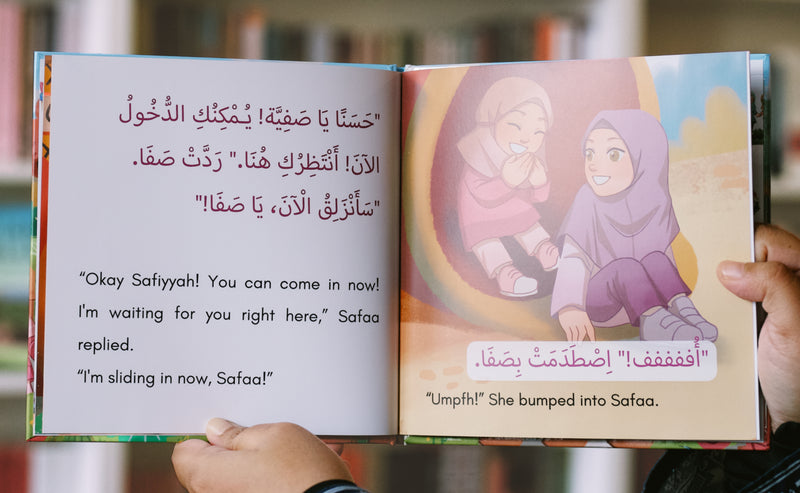 "حَسَنًا يَا صَفِيَّة! يُـمْكِنُكِ الدُّخُولُ
الآنَ! أَنْتَظِرُكِ هُنَا." رَدَّتْ صَفَا.
"سَأَنْزَلِقُ الْآنَ، يَا صَفَا!"
“Okay Safiyyah! You can come in now!
I'm waiting for you right here,” Safaa
replied.
“I'm sliding in now, Safaa!”
"أُفففففف!" اِصْطَدَمَتْ بِصَفَا.
“Umpfh!” She bumped into Safaa.